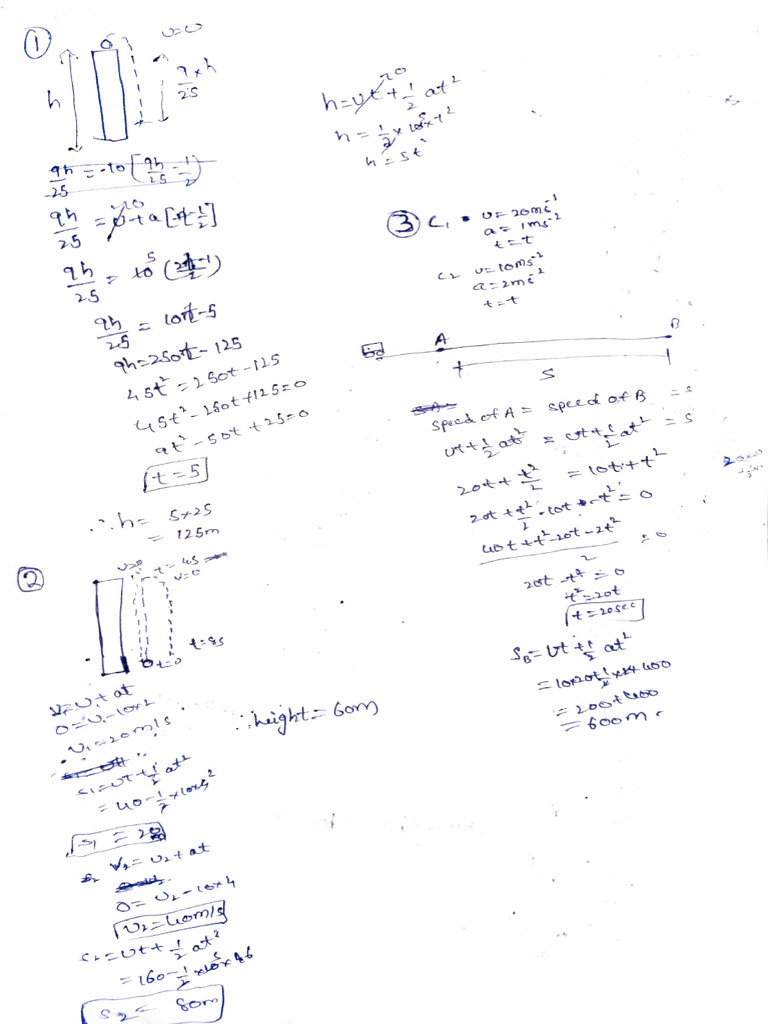 ①
u=0
h
9/25 × h
9h/25 = -10 [9h/25 - 1/2]
9h/25 = u + a [t - 1/2]
9h/25 = 10 (2t-1/2)
9h/25 = 10t-5
9h=250t-125
45t² = 250t-125
45t²-250t+125=0
9t²-50t+25=0
t=5
∴h= 5×25
= 125m
h=ut+1/2 at²
h=1/2×10×t²
h=5t²
③ C₁ u=20ms⁻¹
a=1ms⁻²
t=t
C2 u=10ms⁻²
a=2ms⁻²
t=t
A
B
S
speed of A = speed of B = s
ut+1/2 at² = ut+1/2 at² = s
20t + t²/2 = 10t+t²
20t+t²/2-10t-t²=0
40t+t²-20t-2t²/2 =0
20t-t²=0
t²=20t
t=20sec
S_B=ut+1/2 at²
=10×20+1/2×2×400
=200+400
=600m
②
u=0
t=4s
v=0
t=8s
t=0
v=u+at
0=u₁-10×2
u₁=20m/s
s₁=ut+1/2 at²
=40-1/2×10×2²
s₁ = 20
v₂=u₂+at
0=u₂-10×4
u₂=40m/s
s₂=ut+1/2 at²
=160-1/2×10×16
s₂= 80m
∴height=60m